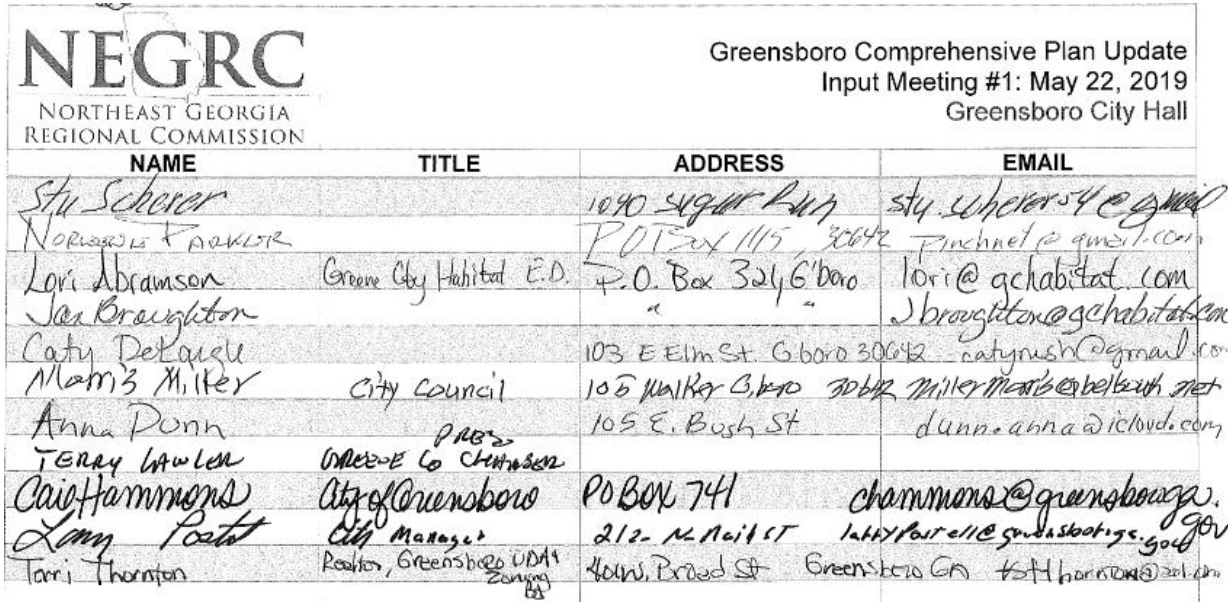 NEGRC
NORTHEAST GEORGIA
REGIONAL COMMISSION
Greensboro Comprehensive Plan Update
Input Meeting #1: May 22, 2019
Greensboro City Hall
NAME TITLE ADDRESS EMAIL
Stu Scherer 1040 Sugar Run stu.scherer54@gmail
PARKER PO Box 1115, 30642 pinchnel@gmail.com
Lori Abramson Greene Cty Habitat E.D. P.O. Box 324, G'boro lori@gchabitat.com
Jan Broughton " " Jbroughton@gchabitat.com
Caty 103 E Elm St. Gboro 30642 catyrush@gmail.com
Morris Miller City Council 105 Walker G.boro 30642 millermorris@bellsouth.net
Anna Dunn 105 E. Bush St dunn.anna@icloud.com
TERRY LAWLER PRES GREENE CO CHAMBER
Hammons City of Greensboro PO BOX 741 chammons@greensboroga.gov
Larry City Manager 212 N. Main ST
Terri Thornton Realtor, Greensboro Zoning W. Broad St Greensboro GA